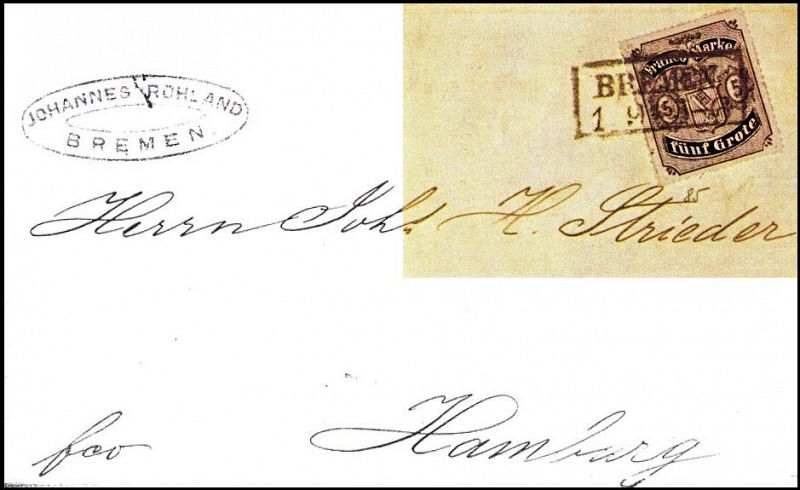 JOHANNES ROHLAND
BREMEN.
Franco Marke
5 5
fünf Grote
BREMEN
Herrn Johs H. Strieder
85
fco Hamburg